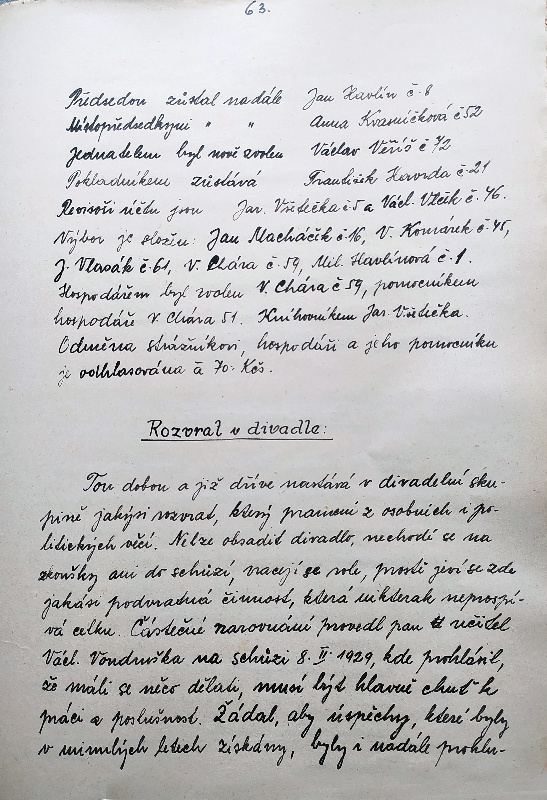 63.
Předsedou zůstal nadále Jan Havlín č. 8
Místopředsedkyní " " Anna Kvasničková č 52
Jednatelem byl nově zvolen Václav Veříš č 72
Pokladníkem zůstává František Havrda č. 21
Revisoři účtu jsou Jar. Všetečka č 5 a Václ. Vlčik č. 46.
Výbor je složen: Jan Macháčik č. 16, V. Komárek č. 45,
J. Vlasák č. 61, V. Chára č. 59, Mil. Havlínová č. 1.
Hospodářem byl zvolen V. Chára č 59, pomocníkem
hospodáře V. Chára 51. Knihovníkem Jar. Všetečka.
Odměna strážníkovi, hospodáři a jeho pomocníku
je odhlasována à 70.- Kčs.
Rozvrat v divadle:
Tou dobou a již dříve nastává v divadelní sku-
pině jakýsi rozvrat, který pramení z osobních i po-
litických věcí. Nelze obsadit divadlo, nechodí se na
zkoušky ani do schůzí, vracejí se role, prostě jeví se zde
jakási podvratná činnost, která nikterak neprospí-
vá celku. Částečné narovnání provedl pan učitel
Václ. Vondruška na schůzi 8. II. 1929, kde prohlásil,
že máli se něco dělati, musí být hlavně chuť k
práci a poslušnost. Žádal, aby úspěchy, které byly
v minulých letech získány, byly i nadále prohlu-